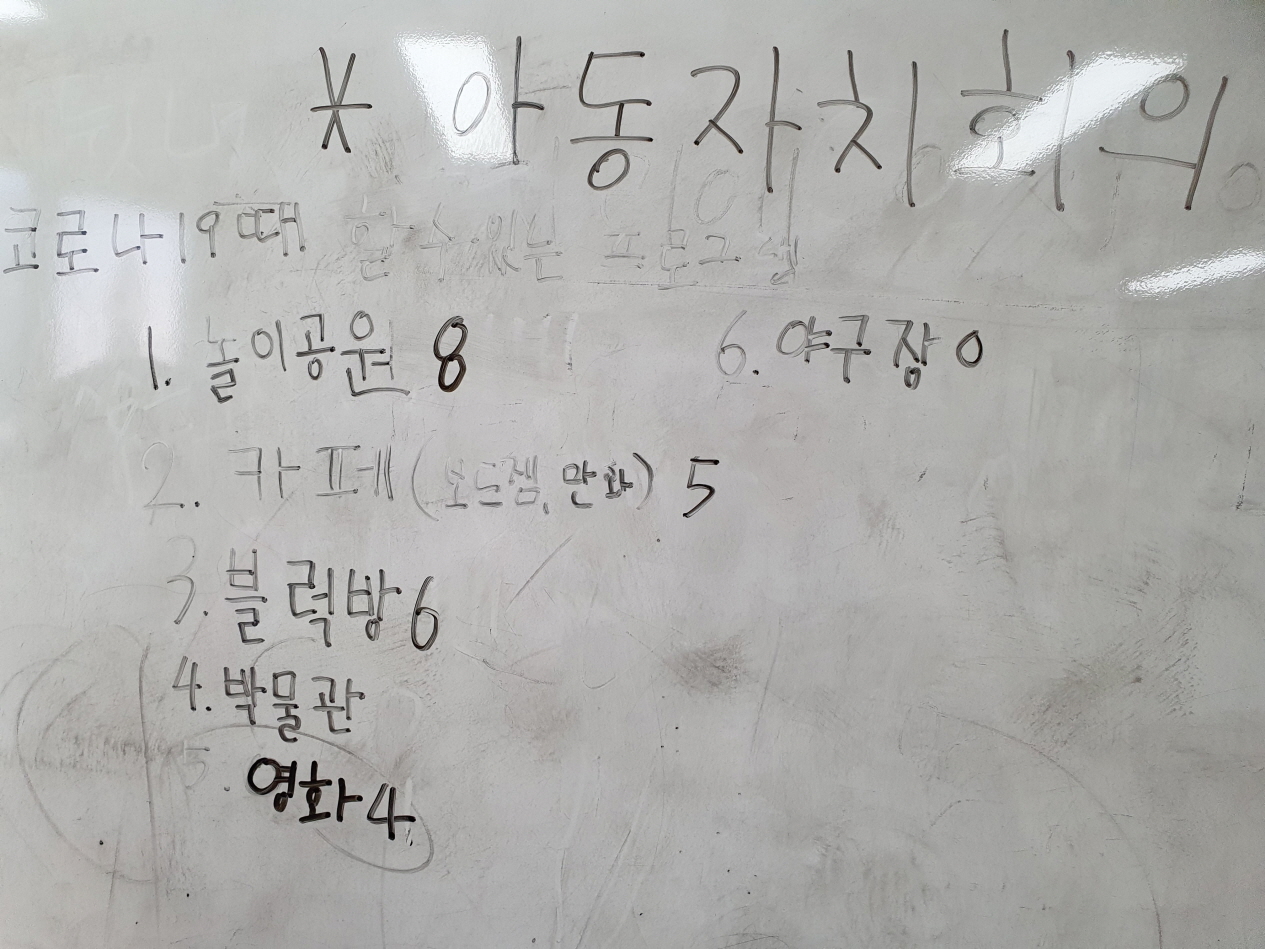 * 아동자치회의
코로나19때 할 수 있는 프로그램
1. 놀이공원 8
2. 카페(보드겜, 만화) 5
3. 블럭방 6
4. 박물관
5. 영화 4
6. 야구장 0